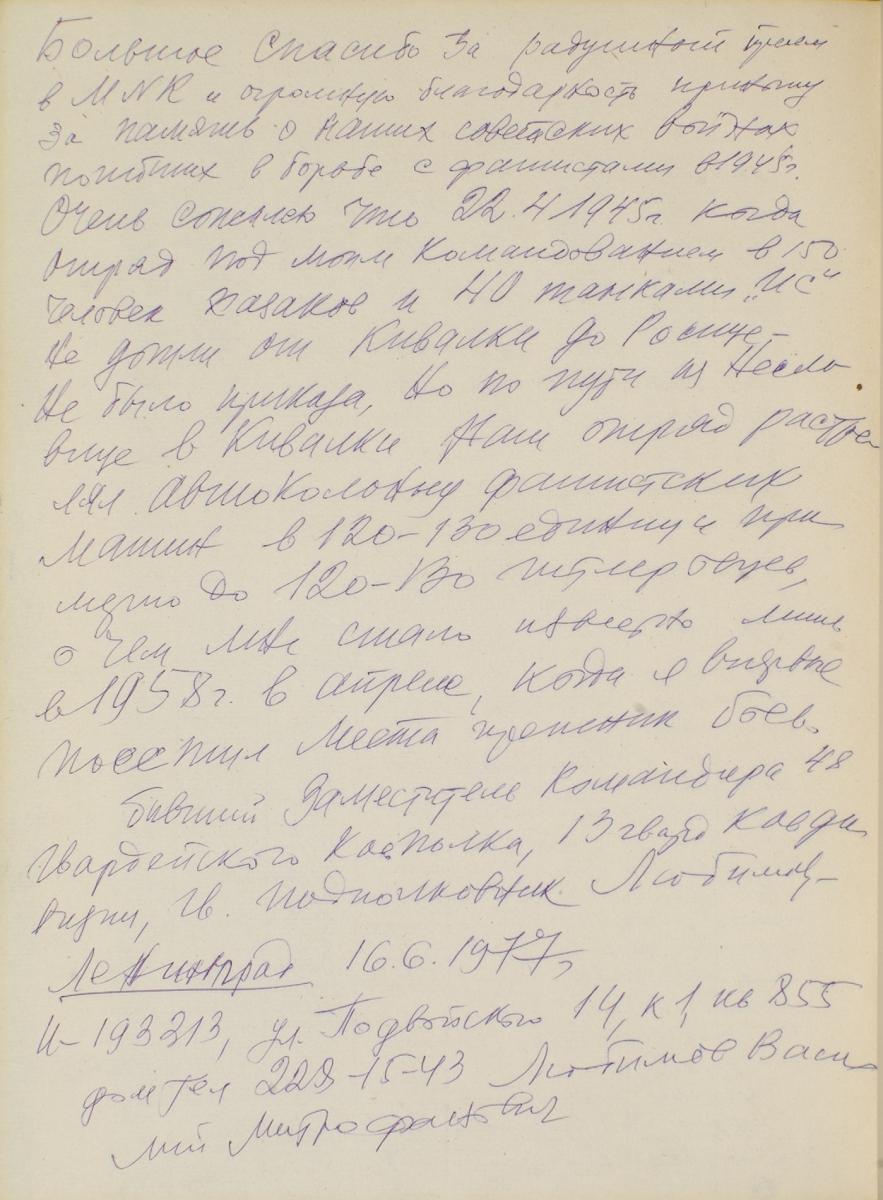 Большое спасибо за радушный прием
в MNK и огромную благодарность приношу
за память о наших советских войнах
погибших в борьбе с фашистами в 1945г.
Очень сожалею что 22.4 1945г. когда
отряд под моим командованием в 150
человек казаков и 40 танками „ИС“
не дошли от Кивалки до Росице-
Не было приказа, Но по пути из Несло
вице в Кивалки наш отряд растре
лял автоколонну фашистских
машин в 120-130 единиц и при
мерно до 120-130 гитлеровцев,
о чем мне стало известно лишь
в 1958г. в апреле, когда я впервые
посетил места прежних боев.
бывший заместитель командира 48
гвардейского кавполка, 13 гвард кавди
визии, гв. подполковник Любимов-
Ленинград 16.6.1977г
И-193313, ул. Подвойского 14, к 1, кв 855
дом тел 228-15-43 Любимов Васи
лий Митрофанович